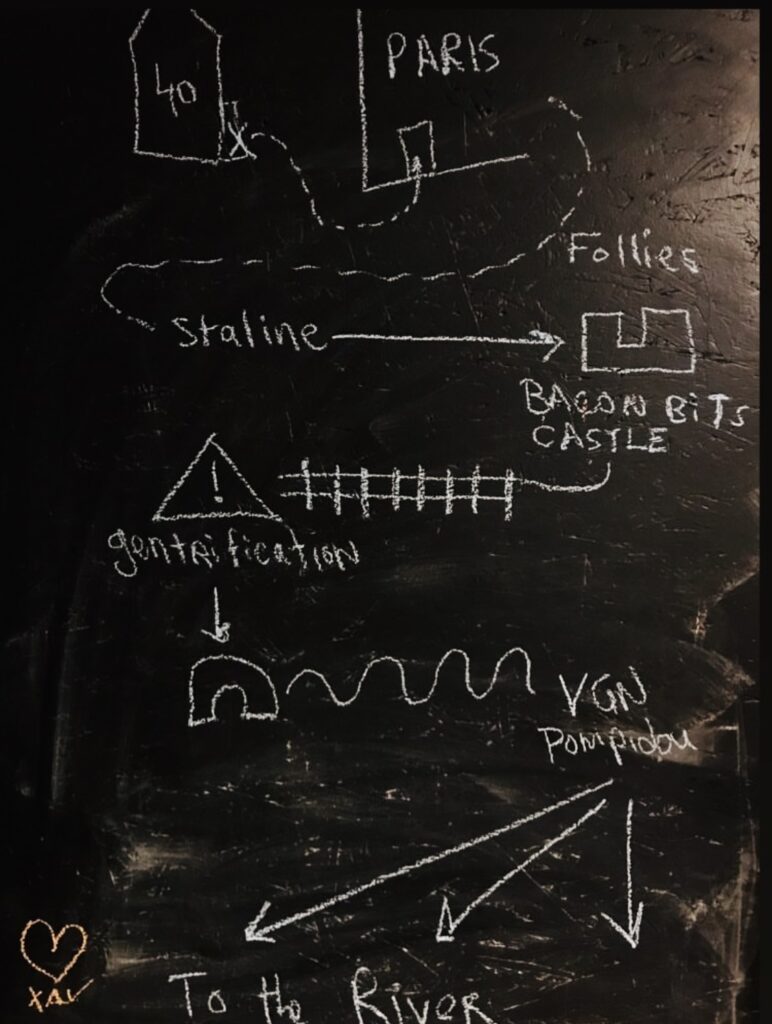 PARIS
40
X
Follies
Staline
BACON BiTS
CASTLE
!
gentrification
VGN
Pompidou
XAV
To the River